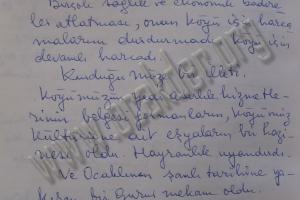 Birçok sağlık ve ekonomik badire
ler atlatması, onun köyü için harca
malarını durdurmadı. Köyü için
devamlı harcadı.
Kurduğu müze bir
Köyümüzün yedi asırlık hizmetle-
rinin belgesi, ormanların, köyümüz
kültürüne ait eşyaların bir hazi
nesi oldu. Hayranlık uyandırdı.
Ve Ocaklının şanlı tarihine ya-
kışan bir gurur mekanı oldu.